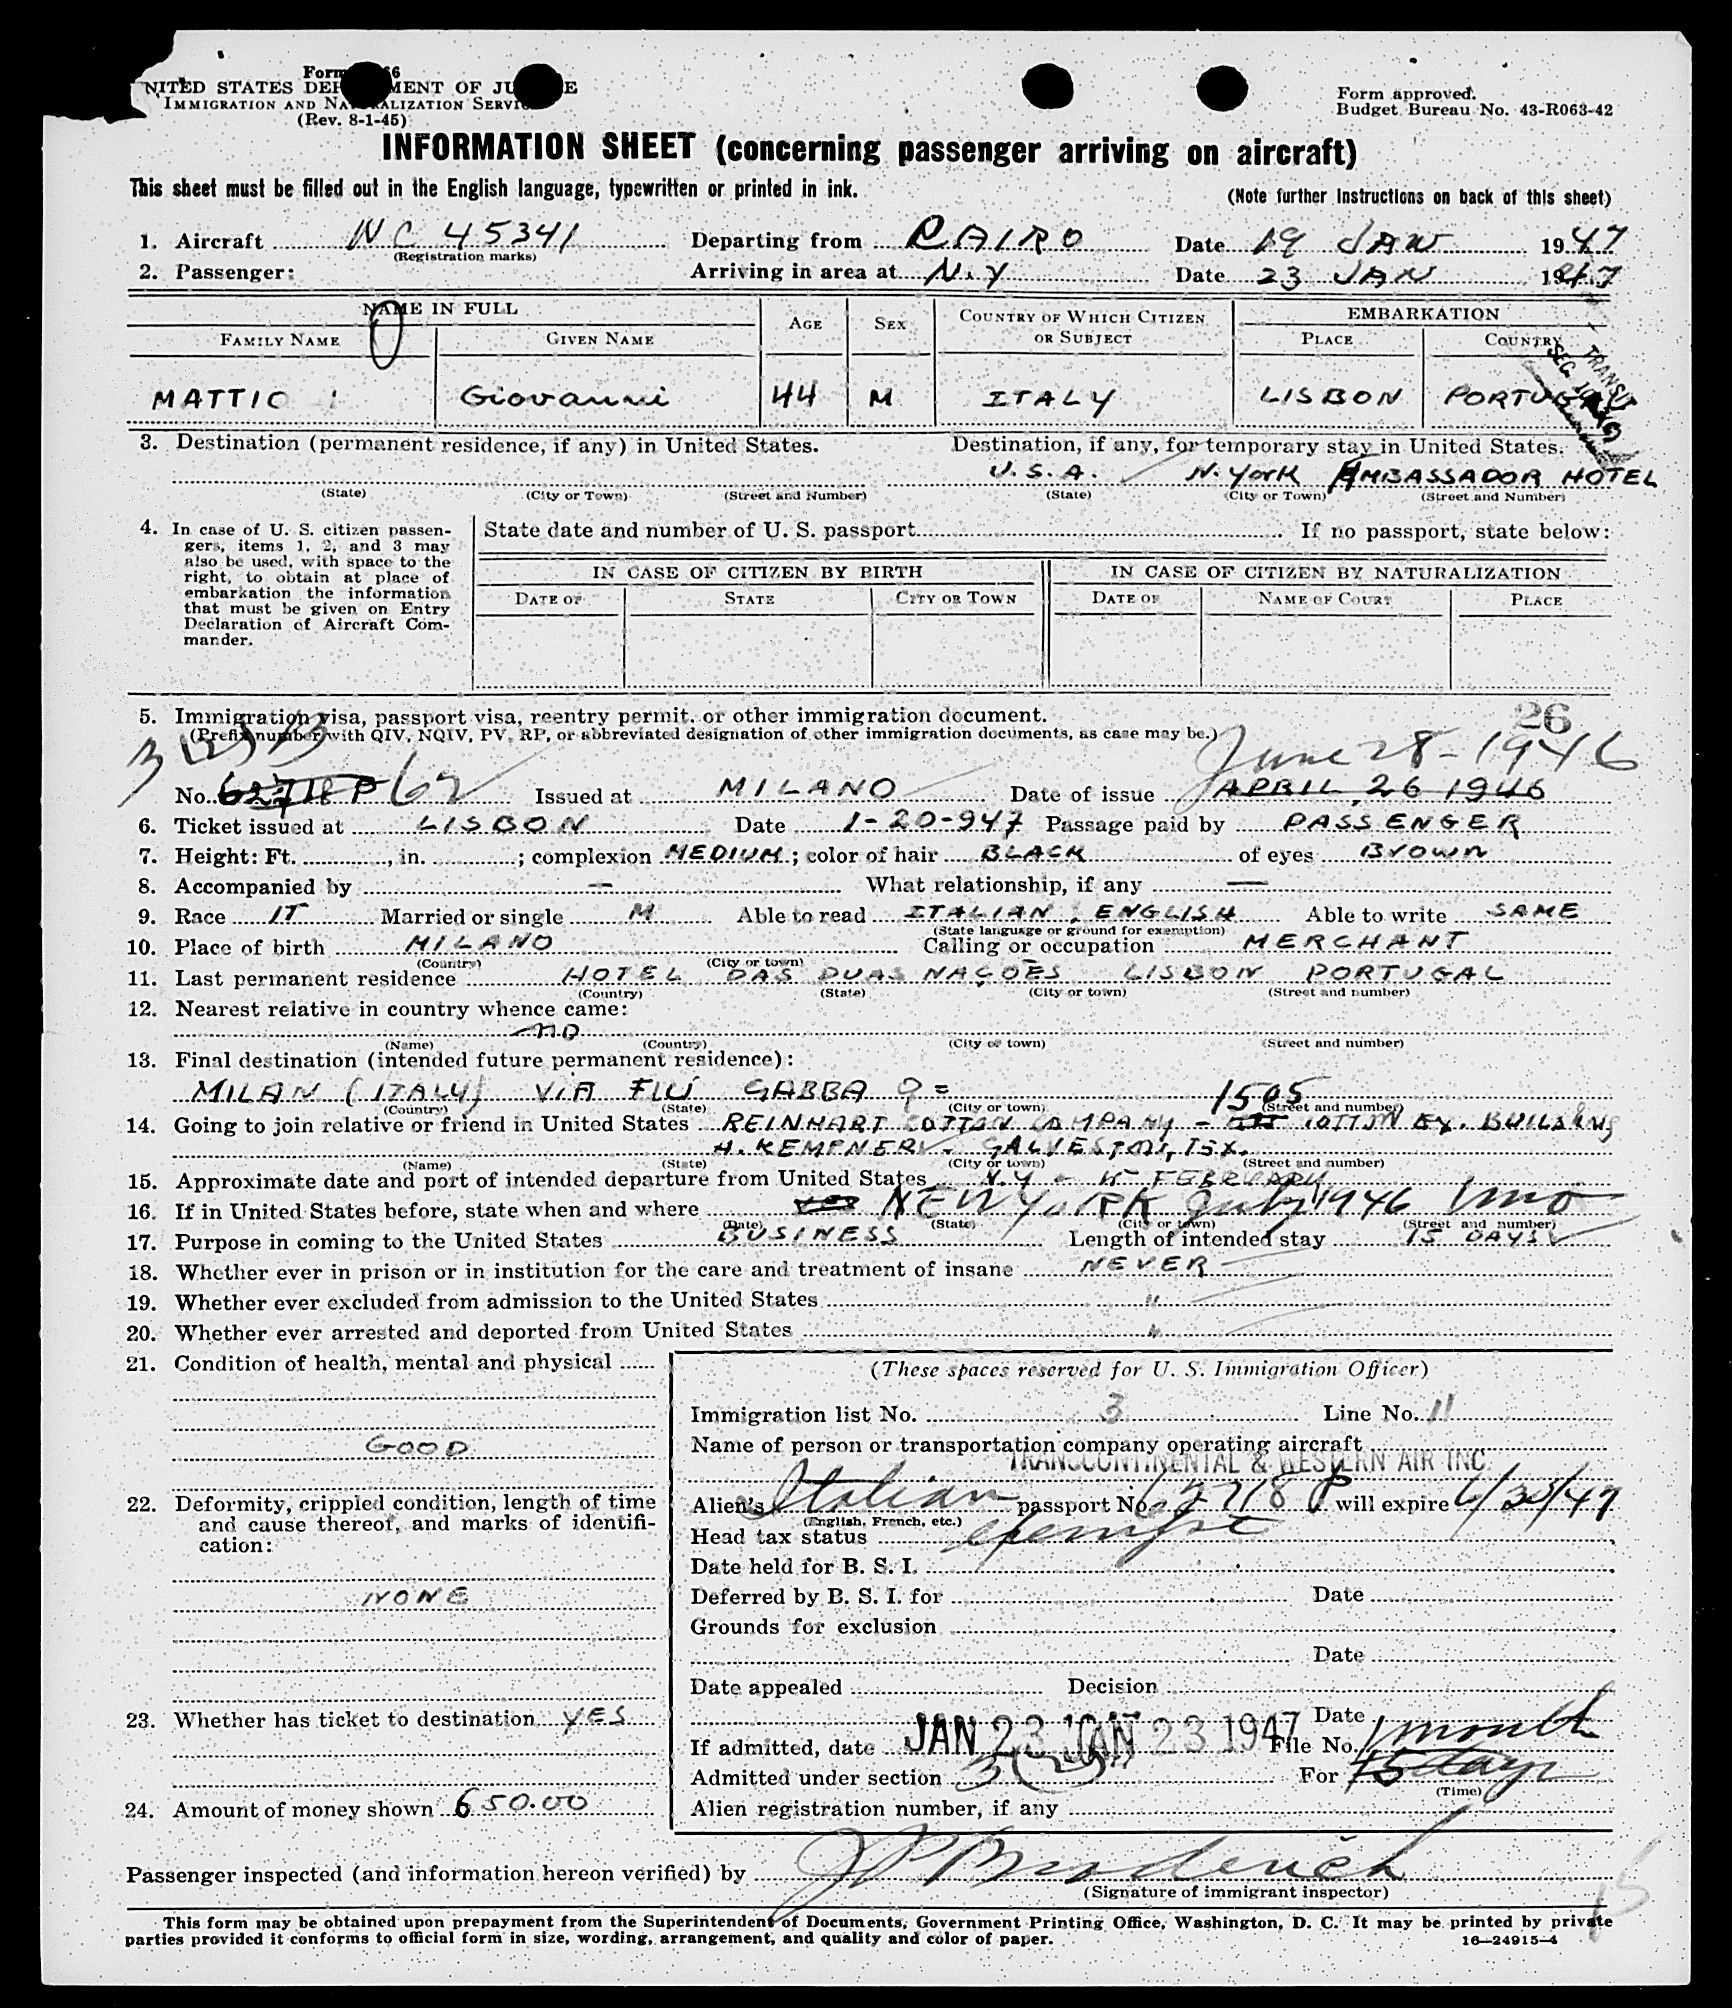 Form 66
UNITED STATES DEPARTMENT OF JUSTICE
IMMIGRATION AND NATURALIZATION SERVICE
(Rev. 8-1-45)
Form approved.
Budget Bureau No. 43-R063-42
INFORMATION SHEET (concerning passenger arriving on aircraft)
This sheet must be filled out in the English language, typewritten or printed in ink.
(Note further instructions on back of this sheet)
1. Aircraft NC 45341 Departing from CAIRO Date 19 JAN 1947
(Registration marks)
2. Passenger: Arriving in area at N.Y Date 23 JAN 1947
NAME IN FULL AGE SEX COUNTRY OF WHICH CITIZEN OR SUBJECT EMBARKATION
FAMILY NAME GIVEN NAME PLACE COUNTRY
TRANSIT
MATTIC Giovanni 44 M ITALY LISBON PORTUGAL
3. Destination (permanent residence, if any) in United States. Destination, if any, for temporary stay in United States.
U.S.A. N. York AMBASSADOR HOTEL
(State) (City or Town) (Street and Number) (State) (City or Town) (Street and Number)
4. In case of U. S. citizen passengers, items 1, 2, and 3 may also be used, with space to the right, to obtain at place of embarkation the information that must be given on Entry Declaration of Aircraft Commander.
State date and number of U. S. passport If no passport, state below:
IN CASE OF CITIZEN BY BIRTH IN CASE OF CITIZEN BY NATURALIZATION
DATE OF STATE CITY OR TOWN DATE OF NAME OF COURT PLACE
5. Immigration visa, passport visa, reentry permit, or other immigration document.
26
(Prefix number with QIV, NQIV, PV, RP, or abbreviated designation of other immigration documents, as case may be.)
3 (2) B
June 28-1946
No. 62718 P 62 Issued at MILANO Date of issue APRIL, 26 1946
6. Ticket issued at LISBON Date 1-20-947 Passage paid by PASSENGER
7. Height: Ft. , in. ; complexion MEDIUM; color of hair BLACK of eyes Brown
8. Accompanied by — What relationship, if any —
9. Race IT Married or single M Able to read ITALIAN, ENGLISH Able to write SAME
(State language or ground for exemption)
10. Place of birth MILANO Calling or occupation MERCHANT
(Country) (City or town)
11. Last permanent residence HOTEL DAS DUAS NAÇOES LISBON PORTUGAL
(Country) (State) (City or town) (Street and number)
12. Nearest relative in country whence came:
no
(Name) (Country) (City or town) (Street and number)
13. Final destination (intended future permanent residence):
MILAN (ITALY) VIA FLLI GABBA 9 =
(Country) (State) (City or town) (Street and number)
1505
14. Going to join relative or friend in United States REINHART COTTON COMPANY - COTTON EX. BUILDING
H. KEMPNER - GALVESTON, TEX.
(Name) (State) (City or town) (Street and number)
15. Approximate date and port of intended departure from United States N.Y - FEBRUARY
16. If in United States before, state when and where NEW YORK July 1946 1 mo
(Date) (State) (City or town) (Street and number)
17. Purpose in coming to the United States BUSINESS Length of intended stay 15 DAYS
18. Whether ever in prison or in institution for the care and treatment of insane NEVER
19. Whether ever excluded from admission to the United States "
20. Whether ever arrested and deported from United States "
21. Condition of health, mental and physical
GOOD
22. Deformity, crippled condition, length of time and cause thereof, and marks of identification:
NONE
23. Whether has ticket to destination YES
24. Amount of money shown 650.00
(These spaces reserved for U. S. Immigration Officer)
Immigration list No. 3 Line No. 11
Name of person or transportation company operating aircraft
TRANSCONTINENTAL & WESTERN AIR INC
Alien's Italian passport No. 62718 P will expire 6/30/47
(English, French, etc.)
Head tax status exempt
Date held for B. S. I.
Deferred by B. S. I. for Date
Grounds for exclusion
Date
Date appealed Decision
Date
If admitted, date JAN 23 JAN 23 1947 File No.
1 month
Admitted under section 3 (2) For 15 days
(Time)
Alien registration number, if any
Passenger inspected (and information hereon verified) by J P Broderick
(Signature of immigrant inspector)
15
This form may be obtained upon prepayment from the Superintendent of Documents, Government Printing Office, Washington, D. C. It may be printed by private
parties provided it conforms to official form in size, wording, arrangement, and quality and color of paper.
16—24915-4